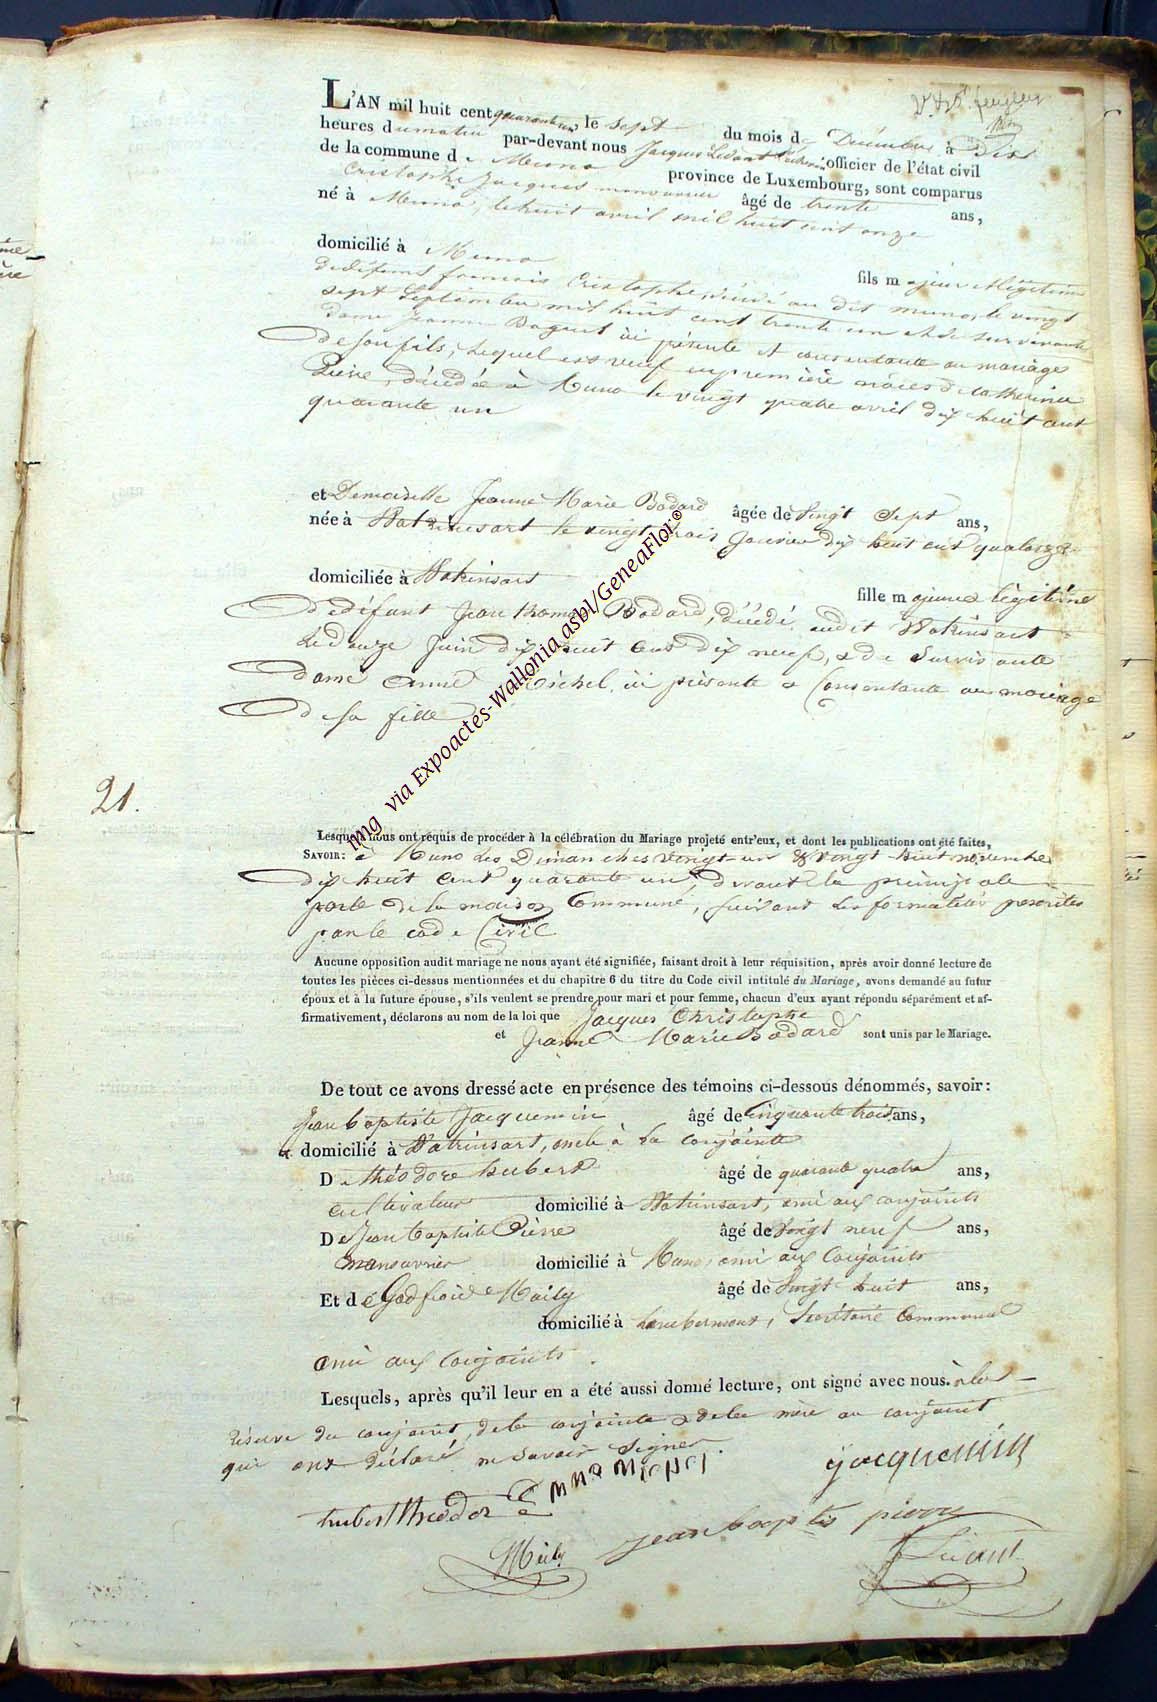 L'AN mil huit cent quarante un, le sept du mois de Décembre à Dix
heures du matin par-devant nous Jacques Liéant Echevin officier de l'état civil
de la commune de Muno province de Luxembourg, sont comparus
Cristophe Jacques manouvrier âgé de trente ans,
né à Muno, le huit avril mil huit cent onze
domicilié à Muno
fils majeur et légitime
de défunt francois Cristophe, décédé au dit muno, le vingt
sept Septembre mil huit cent trente un et de survivante
dame Jeanne ici présente et consentante au mariage
de son fils, lequel est veuf en première nôces de catherine
Pierre, décédée à Muno le vingt quatre avril dix huit cent
quarante un
et Demoiselle Jeanne Marie Bodard âgée de Vingt Sept ans,
née à Watrinsart le vingt trois Janvier dix huit cent quatorze
domiciliée à Watrinsart
fille majeure légitime
de défunt Jean Thomas Bodard, décédé audit Watrinsart
le douze Juin dix huit cent dix neuf, & de Survivante
dame anne Michel, ici présente & Consentante au mariage
de sa fille
21.
Lesquels nous ont requis de procéder à la célébration du Mariage projeté entr'eux, et dont les publications ont été faites,
SAVOIR: à Muno les Dimanches vingt-un & vingt-huit novembre
dix huit cent quarante un, devant la principale
porte de la maison Commune, suivant les formalités prescrites
par le code Civil
Aucune opposition audit mariage ne nous ayant été signifiée, faisant droit à leur réquisition, après avoir donné lecture de
toutes les pièces ci-dessus mentionnées et du chapitre 6 du titre du Code civil intitulé du Mariage, avons demandé au futur
époux et à la future épouse, s'ils veulent se prendre pour mari et pour femme, chacun d'eux ayant répondu séparément et af-
firmativement, déclarons au nom de la loi que Jacques Christophe
et Jeanne Marie Bodard sont unis par le Mariage.
De tout ce avons dressé acte en présence des témoins ci-dessous dénommés, savoir:
Jean baptiste Jacquemin âgé de Cinquante trois ans,
domicilié à Watrinsart, oncle à la conjointe
De théodore hubert âgé de quarante quatre ans,
cultivateur domicilié à Watrinsart, ami aux conjoints
De Jean baptiste Pierre âgé de Vingt neuf ans,
manouvrier domicilié à Muno, ami aux Conjoints
Et de Godfroid Mailly âgé de Vingt huit ans,
domicilié à Lambermont, Secrétaire Communal
ami aux Conjoints.
Lesquels, après qu'il leur en a été aussi donné lecture, ont signé avec nous. à la
réserve du conjoint, de la conjointe & de la mère au conjoint
qui ont déclaré ne savoir signer.
jacquemin
hubert theodore
anna michel
jean baptis pierre
Liéant
img via Expoactes-Wallonia asbl/GeneaFlor©